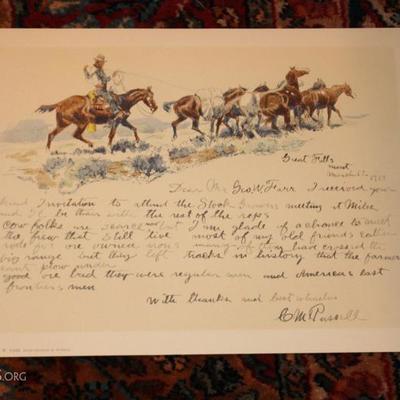 Great Falls
Mont
March
Dear Mr Geo W. Farr I received your
kind Invitation to attend the Stock Growers meeting at Miles
and Il be their with the rest of the reps
Cow folks are scarce now but I me glade of a chance to
the few that still live most of my old friends
are owened many of they have crossed the
big range but they left tracks in history that the farmer
cant plow under
good ore bad they were regular men and Americas last
frontiers men
With thanks and best wishes
C M Russell
S.ORG